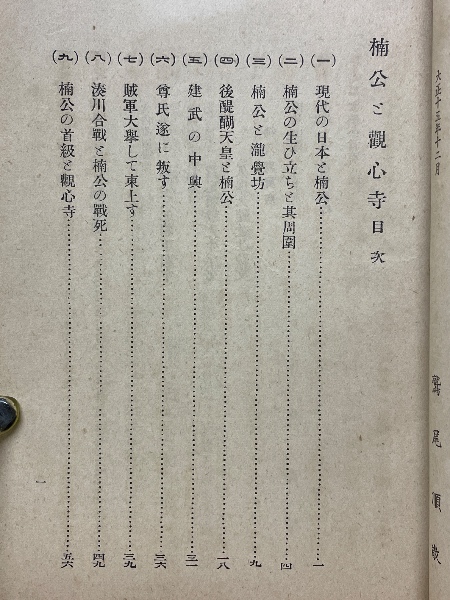 大正十五年十二月
鷲尾順敬
楠公と觀心寺目次
(一)現代の日本と楠公……一
(二)楠公の生ひ立ちと其周圍……四
(三)楠公と瀧覺坊……九
(四)後醍醐天皇と楠公……一八
(五)建武の中興……三一
(六)尊氏遂に叛す……三六
(七)賊軍大擧して東上す……三九
(八)湊川合戰と楠公の戰死……四九
(九)楠公の首級と觀心寺……五六
一